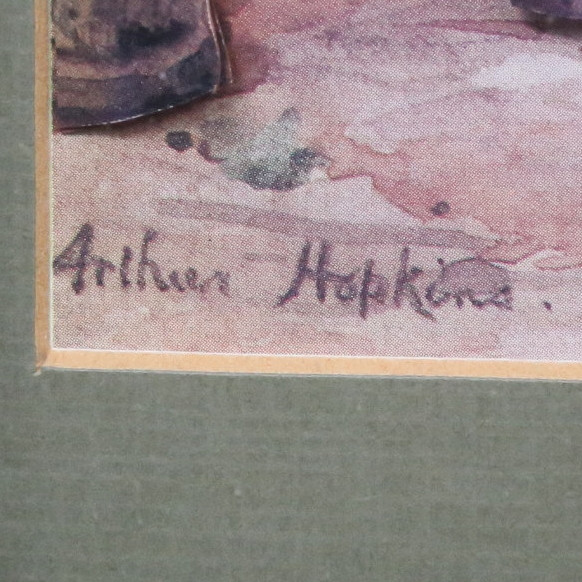 Arthur Hopkins.